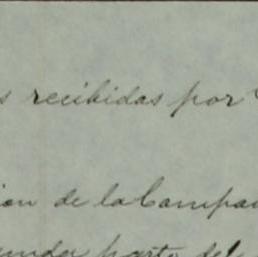 s recibidas por
ion de la Campa
parte del